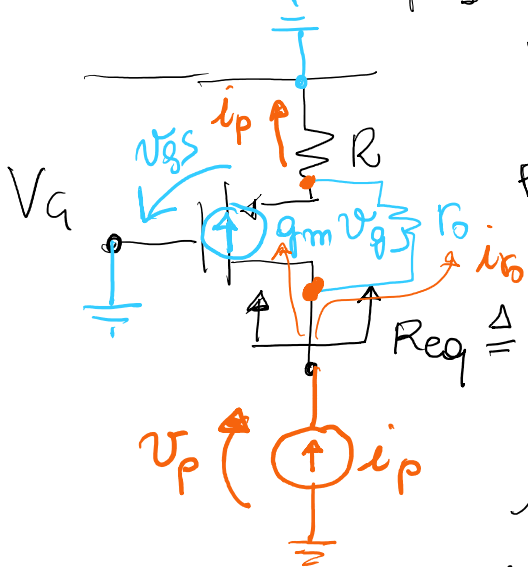 i_p
R
v_gs
V_G
g_m v_gs
r_o
i_ro
Req ≜
v_p
i_p